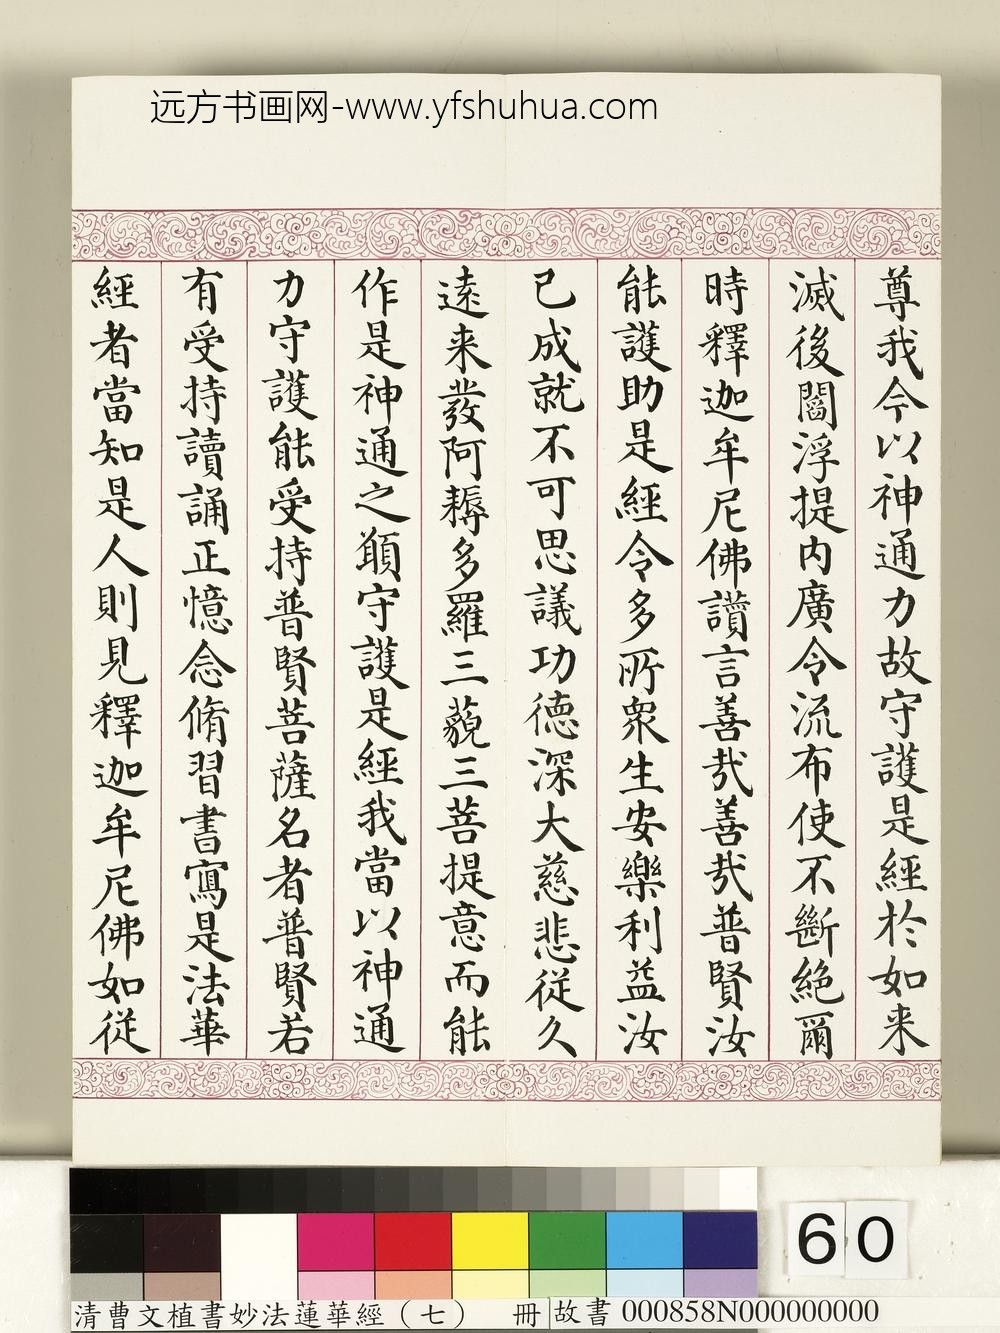 远方书画网-www.yfshuhua.com
尊我今以神通力故守護是經於如来
滅後閻浮提内廣令流布使不斷絶爾
時釋迦牟尼佛讚言善㢤善㢤普賢汝
能護助是經令多所衆生安樂利益汝
已成就不可思議功德深大慈悲從久
遠来發阿耨多羅三藐三菩提意而能
作是神通之願守護是經我當以神通
力守護能受持普賢菩薩名者普賢若
有受持讀誦正憶念脩習書寫是法華
經者當知是人則見釋迦牟尼佛如從
60
清曹文植書妙法蓮華經（七） 冊 故書 000858N000000000